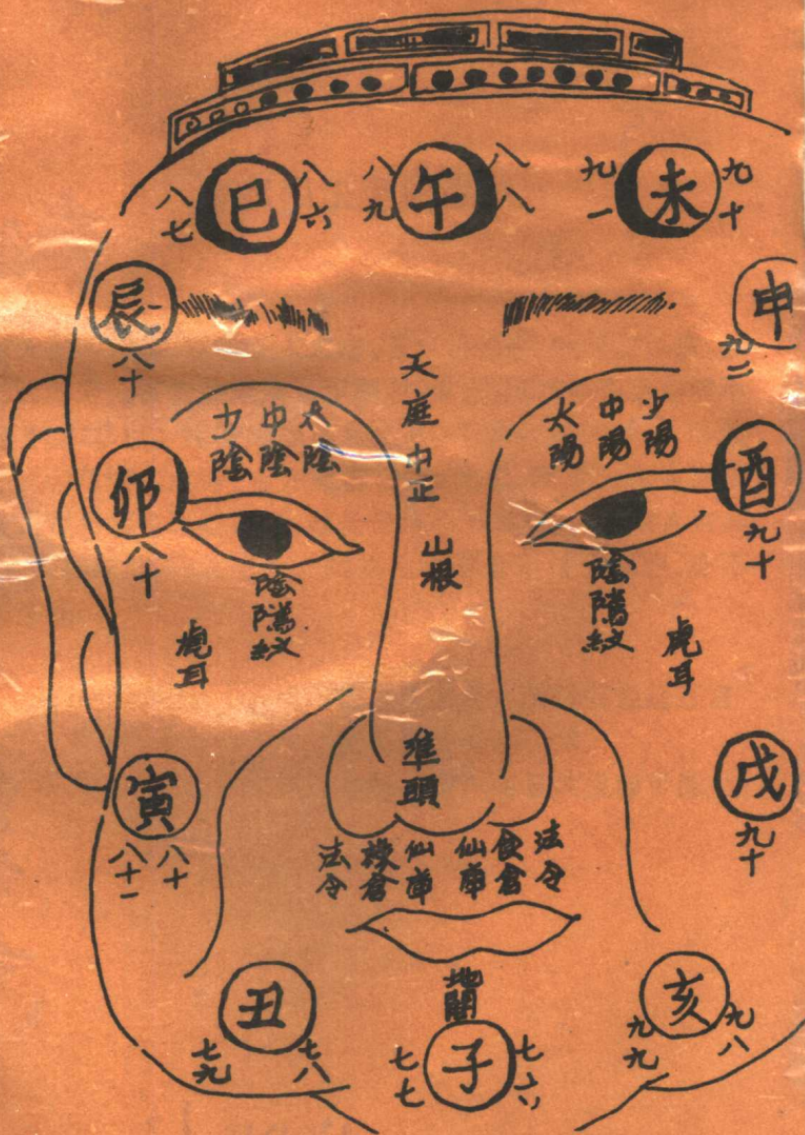 八七
巳
八六
八九
午
八八
九一
未
九十
辰
八十
申
九二
天庭
中正
山根
少陰
中陰
太陰
太陽
中陽
少陽
卯
八十
酉
九十
陰隲紋
陰隲紋
虎耳
虎耳
準頭
寅
八十一
八十
戌
九十
法令
仙庫
仙庫
食倉
法令
丑
七九
七八
地閣
子
七七
七六
亥
九九
九八